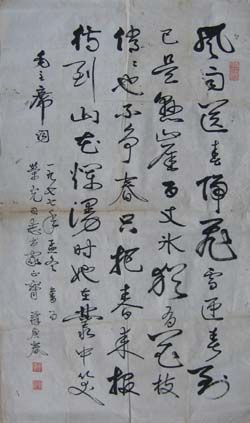 风雨送春归飛雪迎春到
已是悬崖百丈冰犹有花枝
俏俏也不争春只把春来报
待到山花爛漫时她在叢中笑
毛主席词
一九七七年孟冬书
荣光同志